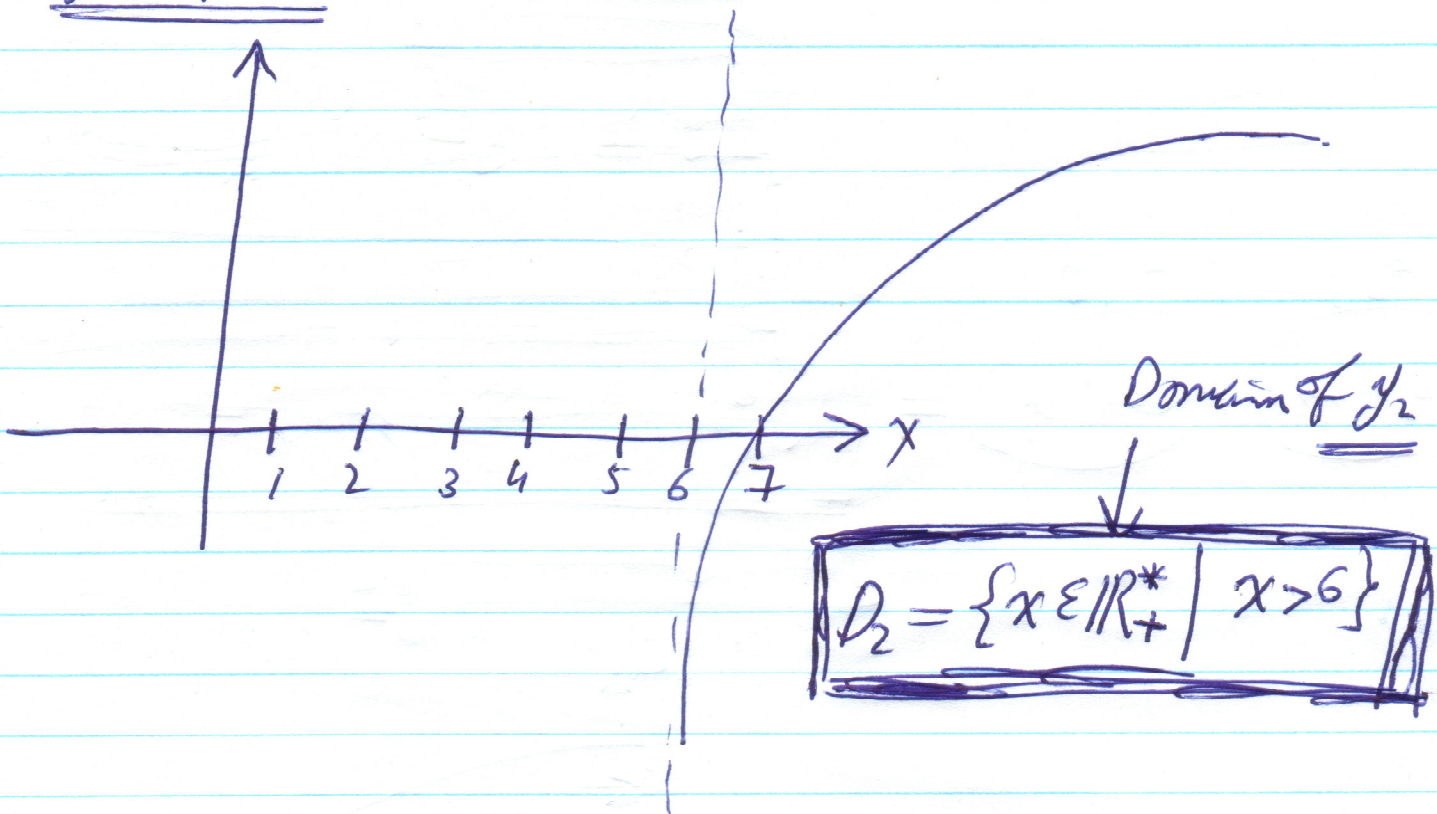 1 2 3 4 5 6 7 x
Domain of y₂
D₂ = {x ε ℝ*₊ | x > 6}